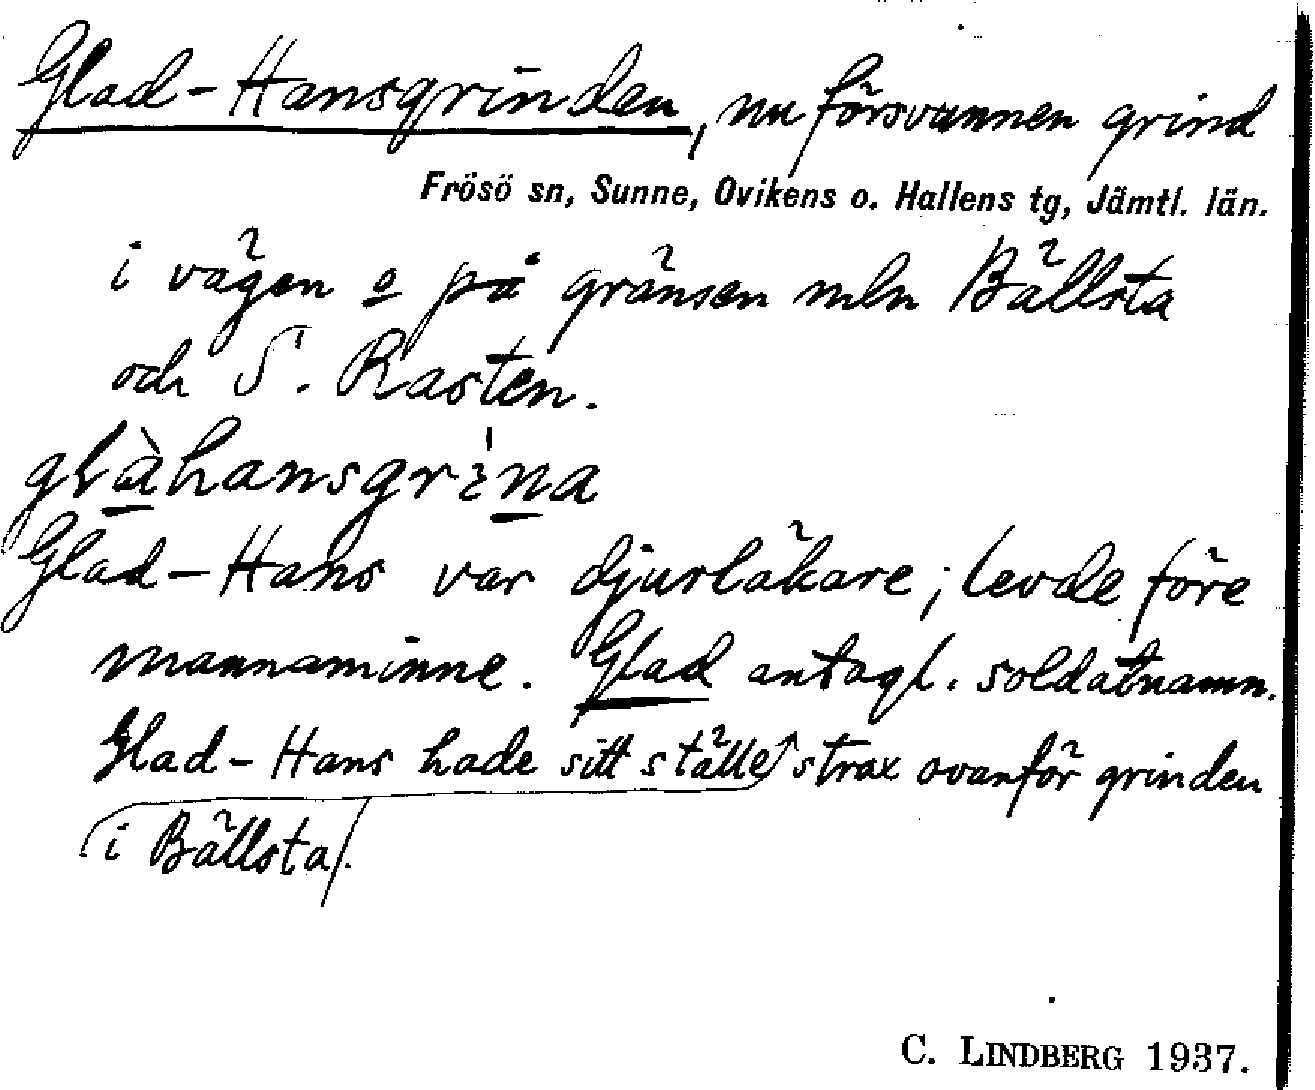 Glad-Hansgrinden, nu försvunnen grind
Frösö sn, Sunne, Ovikens o. Hallens tg, Jämtl. län.
i vägen o på gränsen mln Bällsta
och S. Rasten.
glàhansgrı̀na
Glad-Hans var djurläkare; levde före
mannaminne. Glad antagl. soldatnamn.
Glad-Hans hade sitt ställe strax ovanför grinden
i Bällsta.
C. LINDBERG 1937.